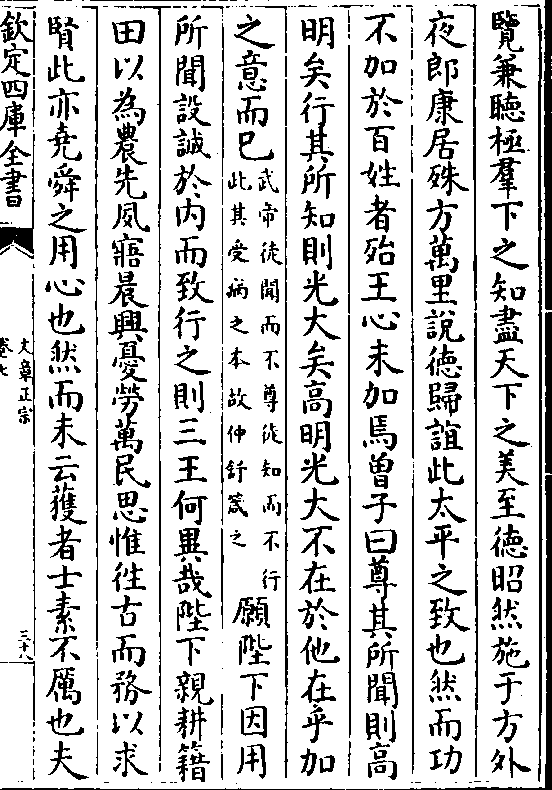 覽兼聽極羣下之知盡天下之美至德昭然施于方外
夜郎康居殊方萬里說德歸誼此太平之致也然而功
不加於百姓者殆王心未加焉曾子曰尊其所聞則高
明矣行其所知則光大矣高明光大不在於他在乎加
之意而已武帝徒聞而不尊徒知而不行此其受病之本故仲舒箴之願陛下因用
所聞設誠於内而致行之則三王何異哉陛下親耕籍
田以為農先夙寤晨興憂勞萬民思惟徃古而務以求
賢此亦堯舜之用心也然而未云獲者士素不厲也夫
欽定四庫全書
文章正宗
卷七
三十八